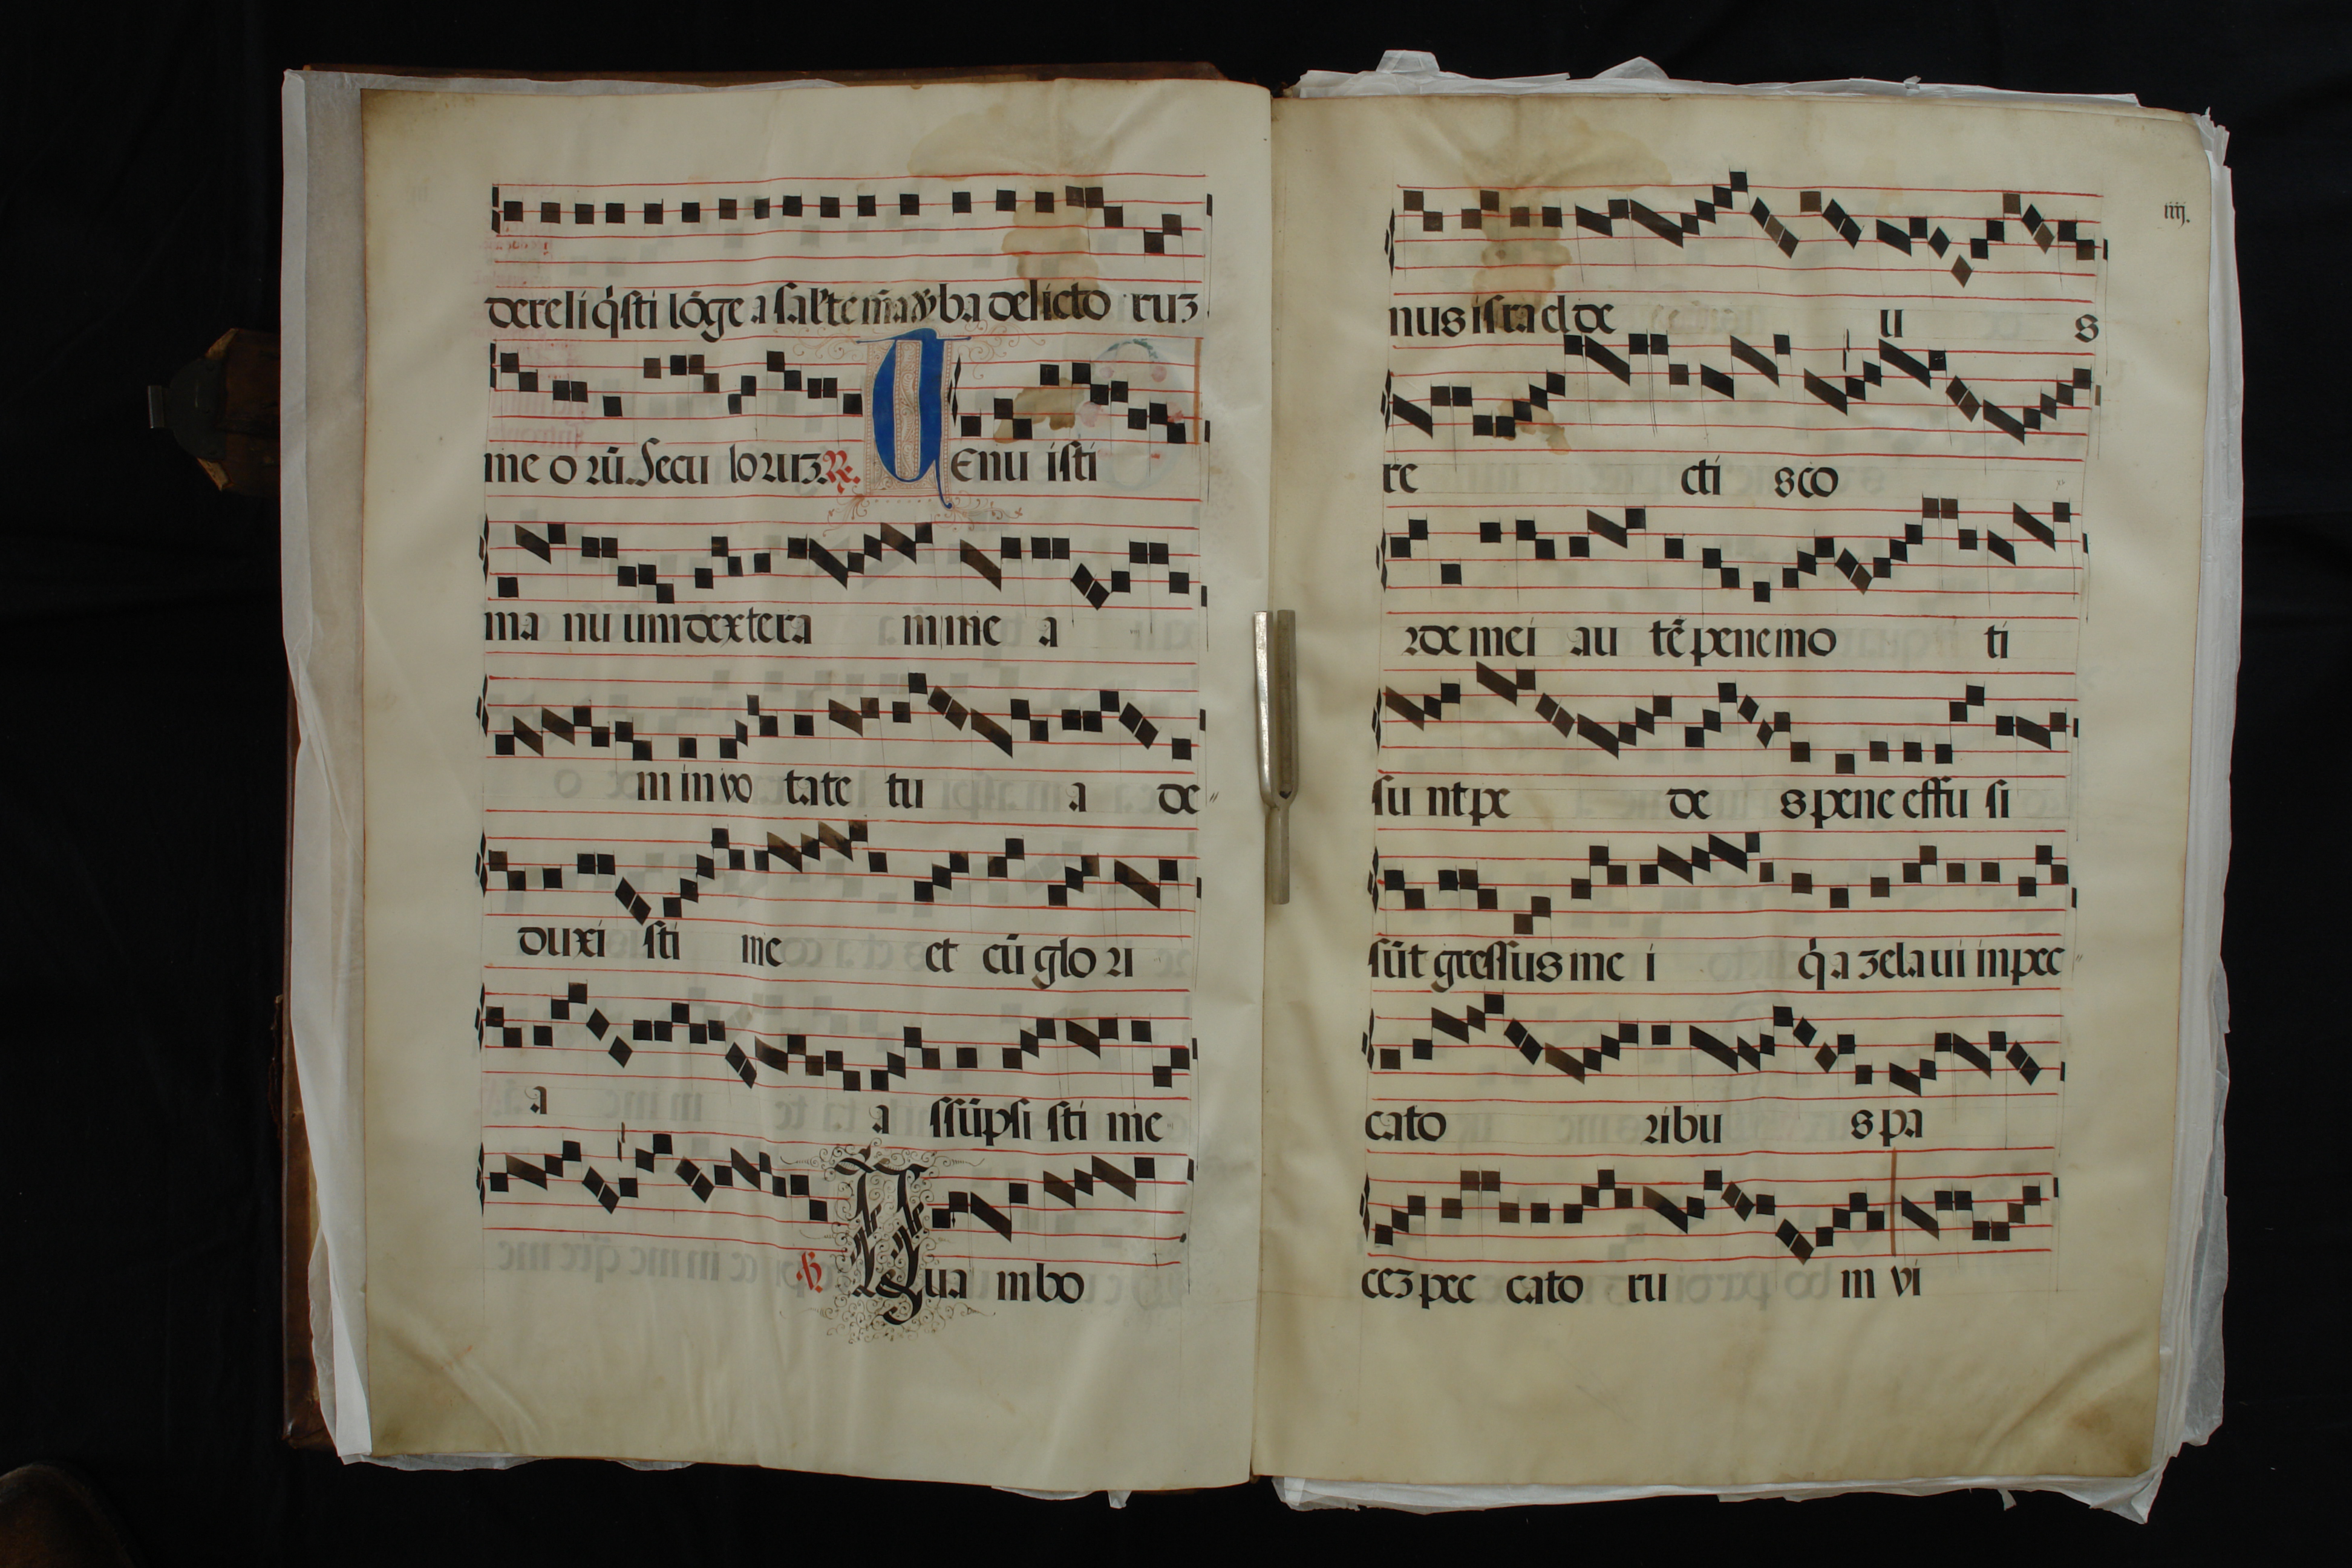 dereliq̇sti lōge a salute m̄a v̄ba delicto ruz
me o rū. Secu lo ruz. R. Tenu isti
ma nu um dextera m me a
m in vo tate tu a de"
duxi sti me et cū glo ri
a a ssūpsi sti me
℣ Qua m bo
iiij.
nus israel de u s
re cti s co
rde mei au tē pene mo ti
su nt pe de s pene effu si
sūt gressus me i q̇a zelaui in pec"
cato ribu s pa
cez pec cato ru m vi